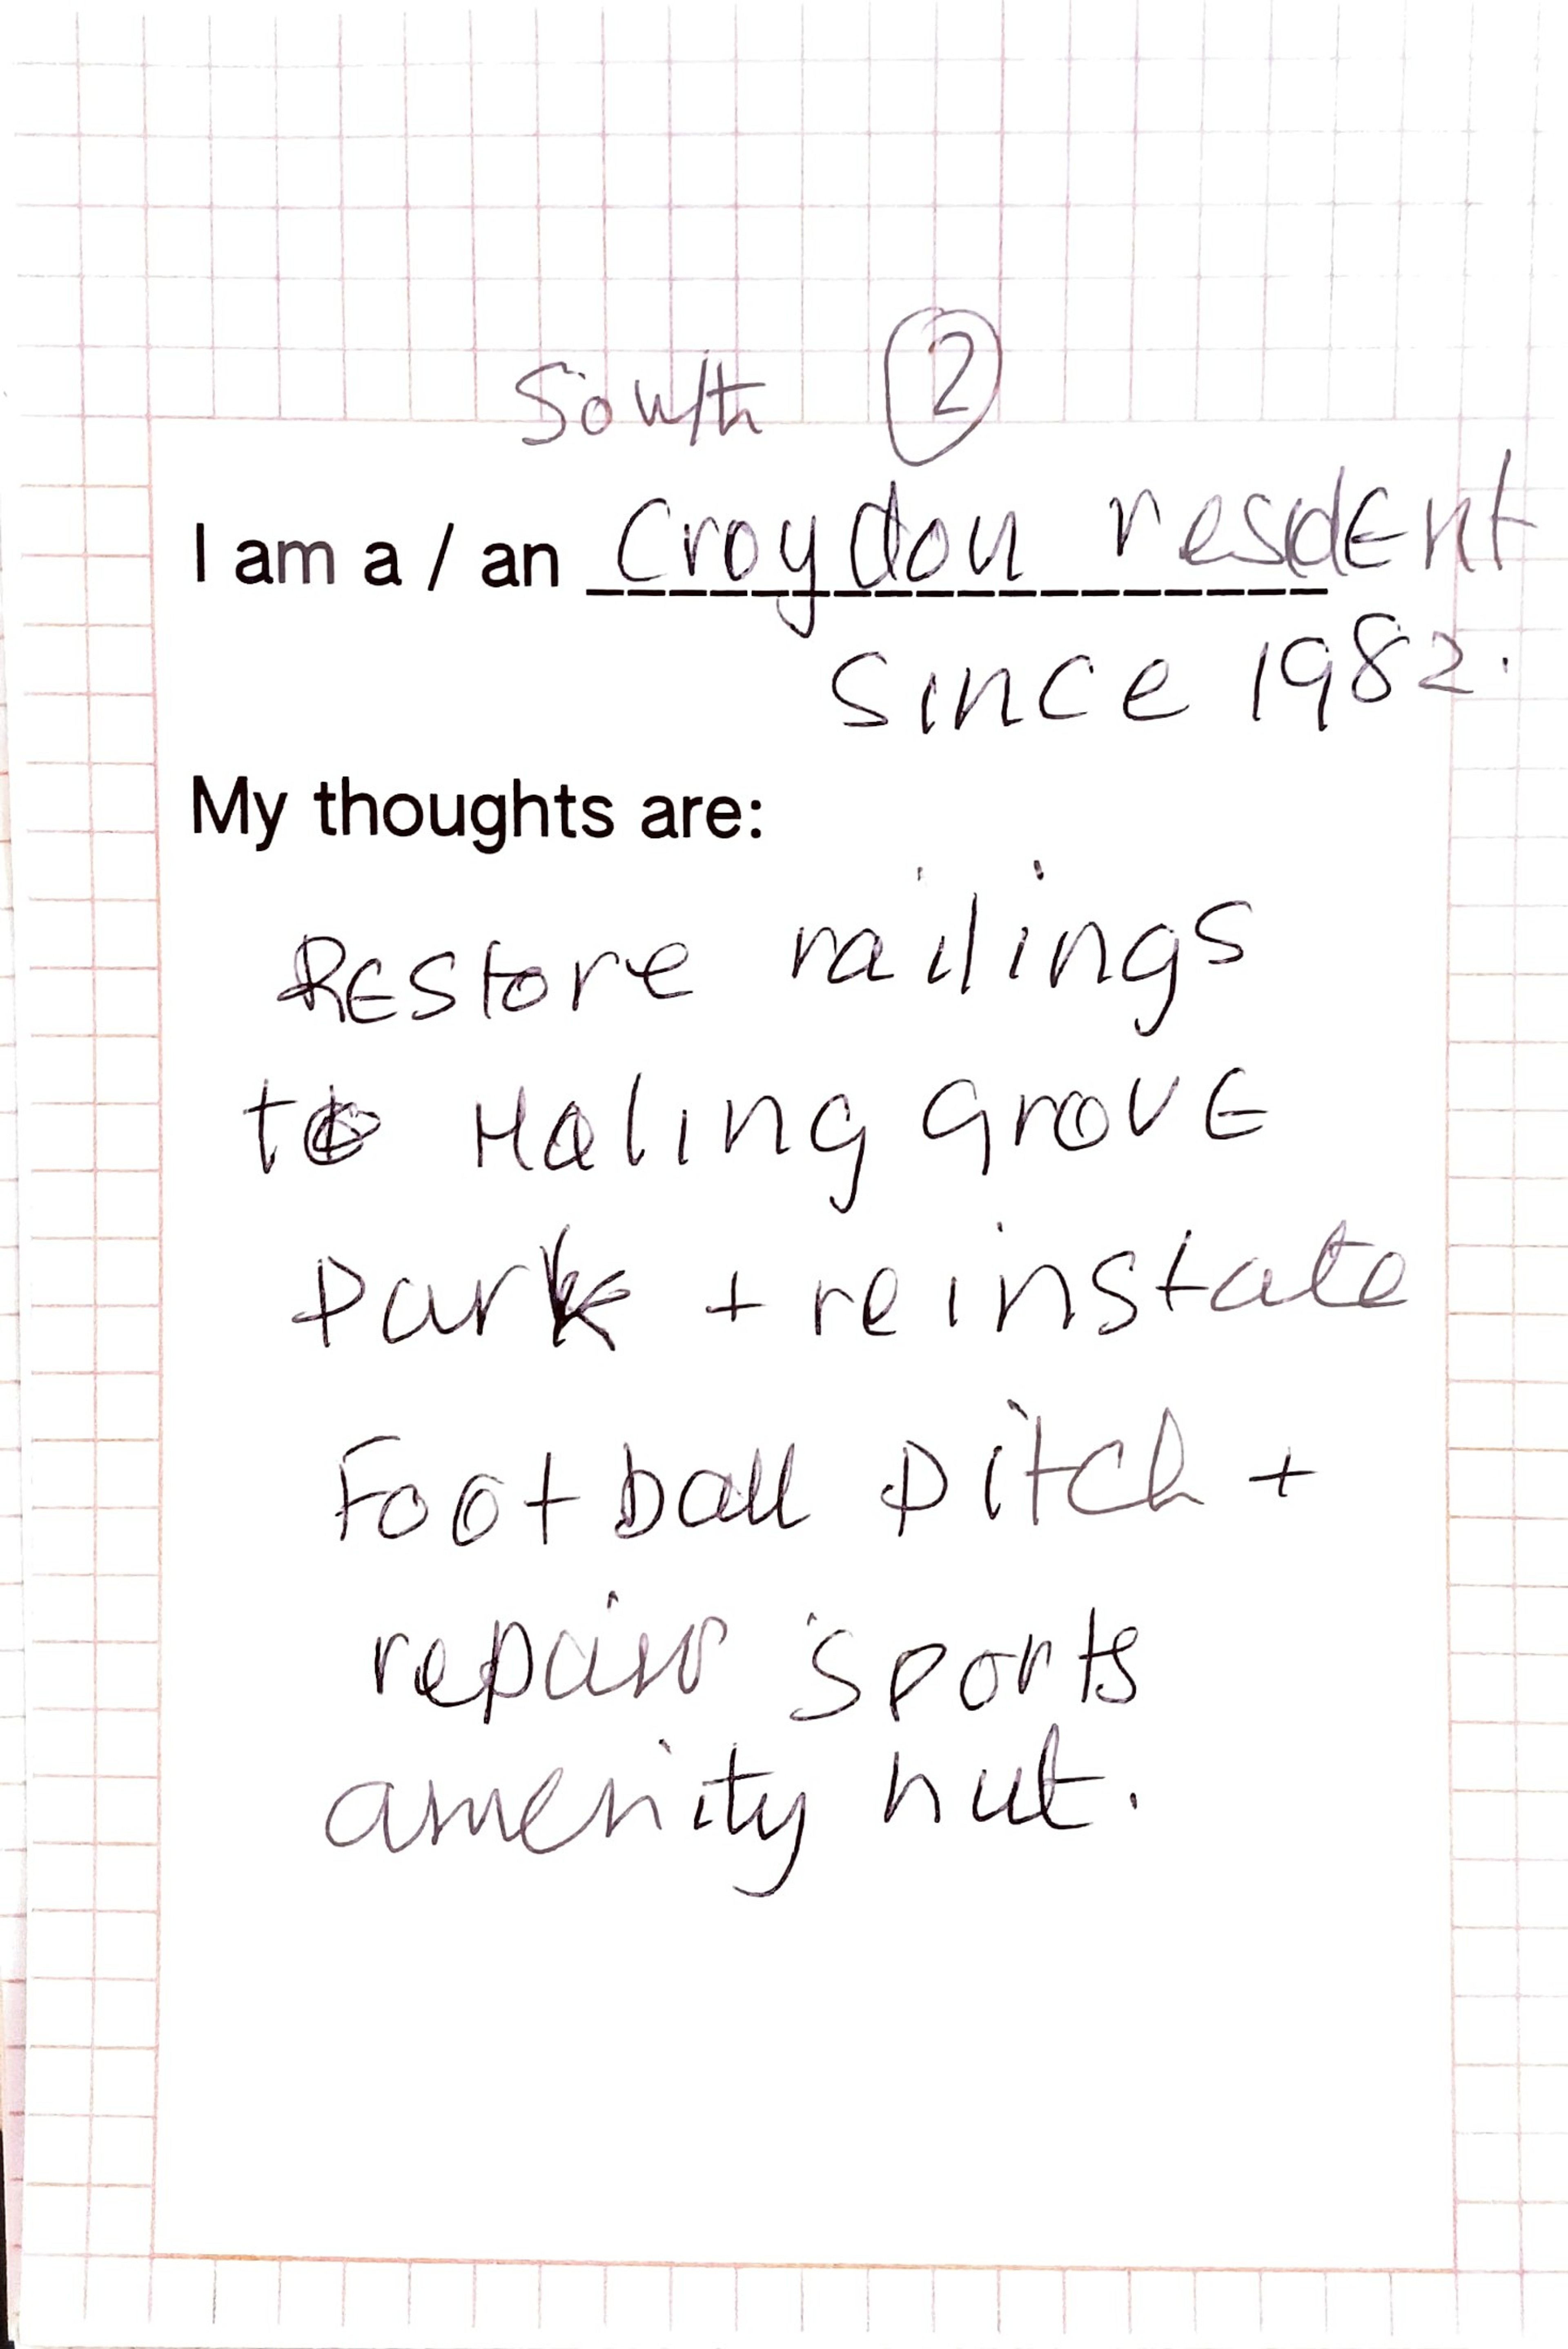 South ②
I am a / an Croydon resident
since 1982.
My thoughts are:
Restore railings
to Haling Grove
Park + reinstate
Football pitch +
repair sports
amenity hut.